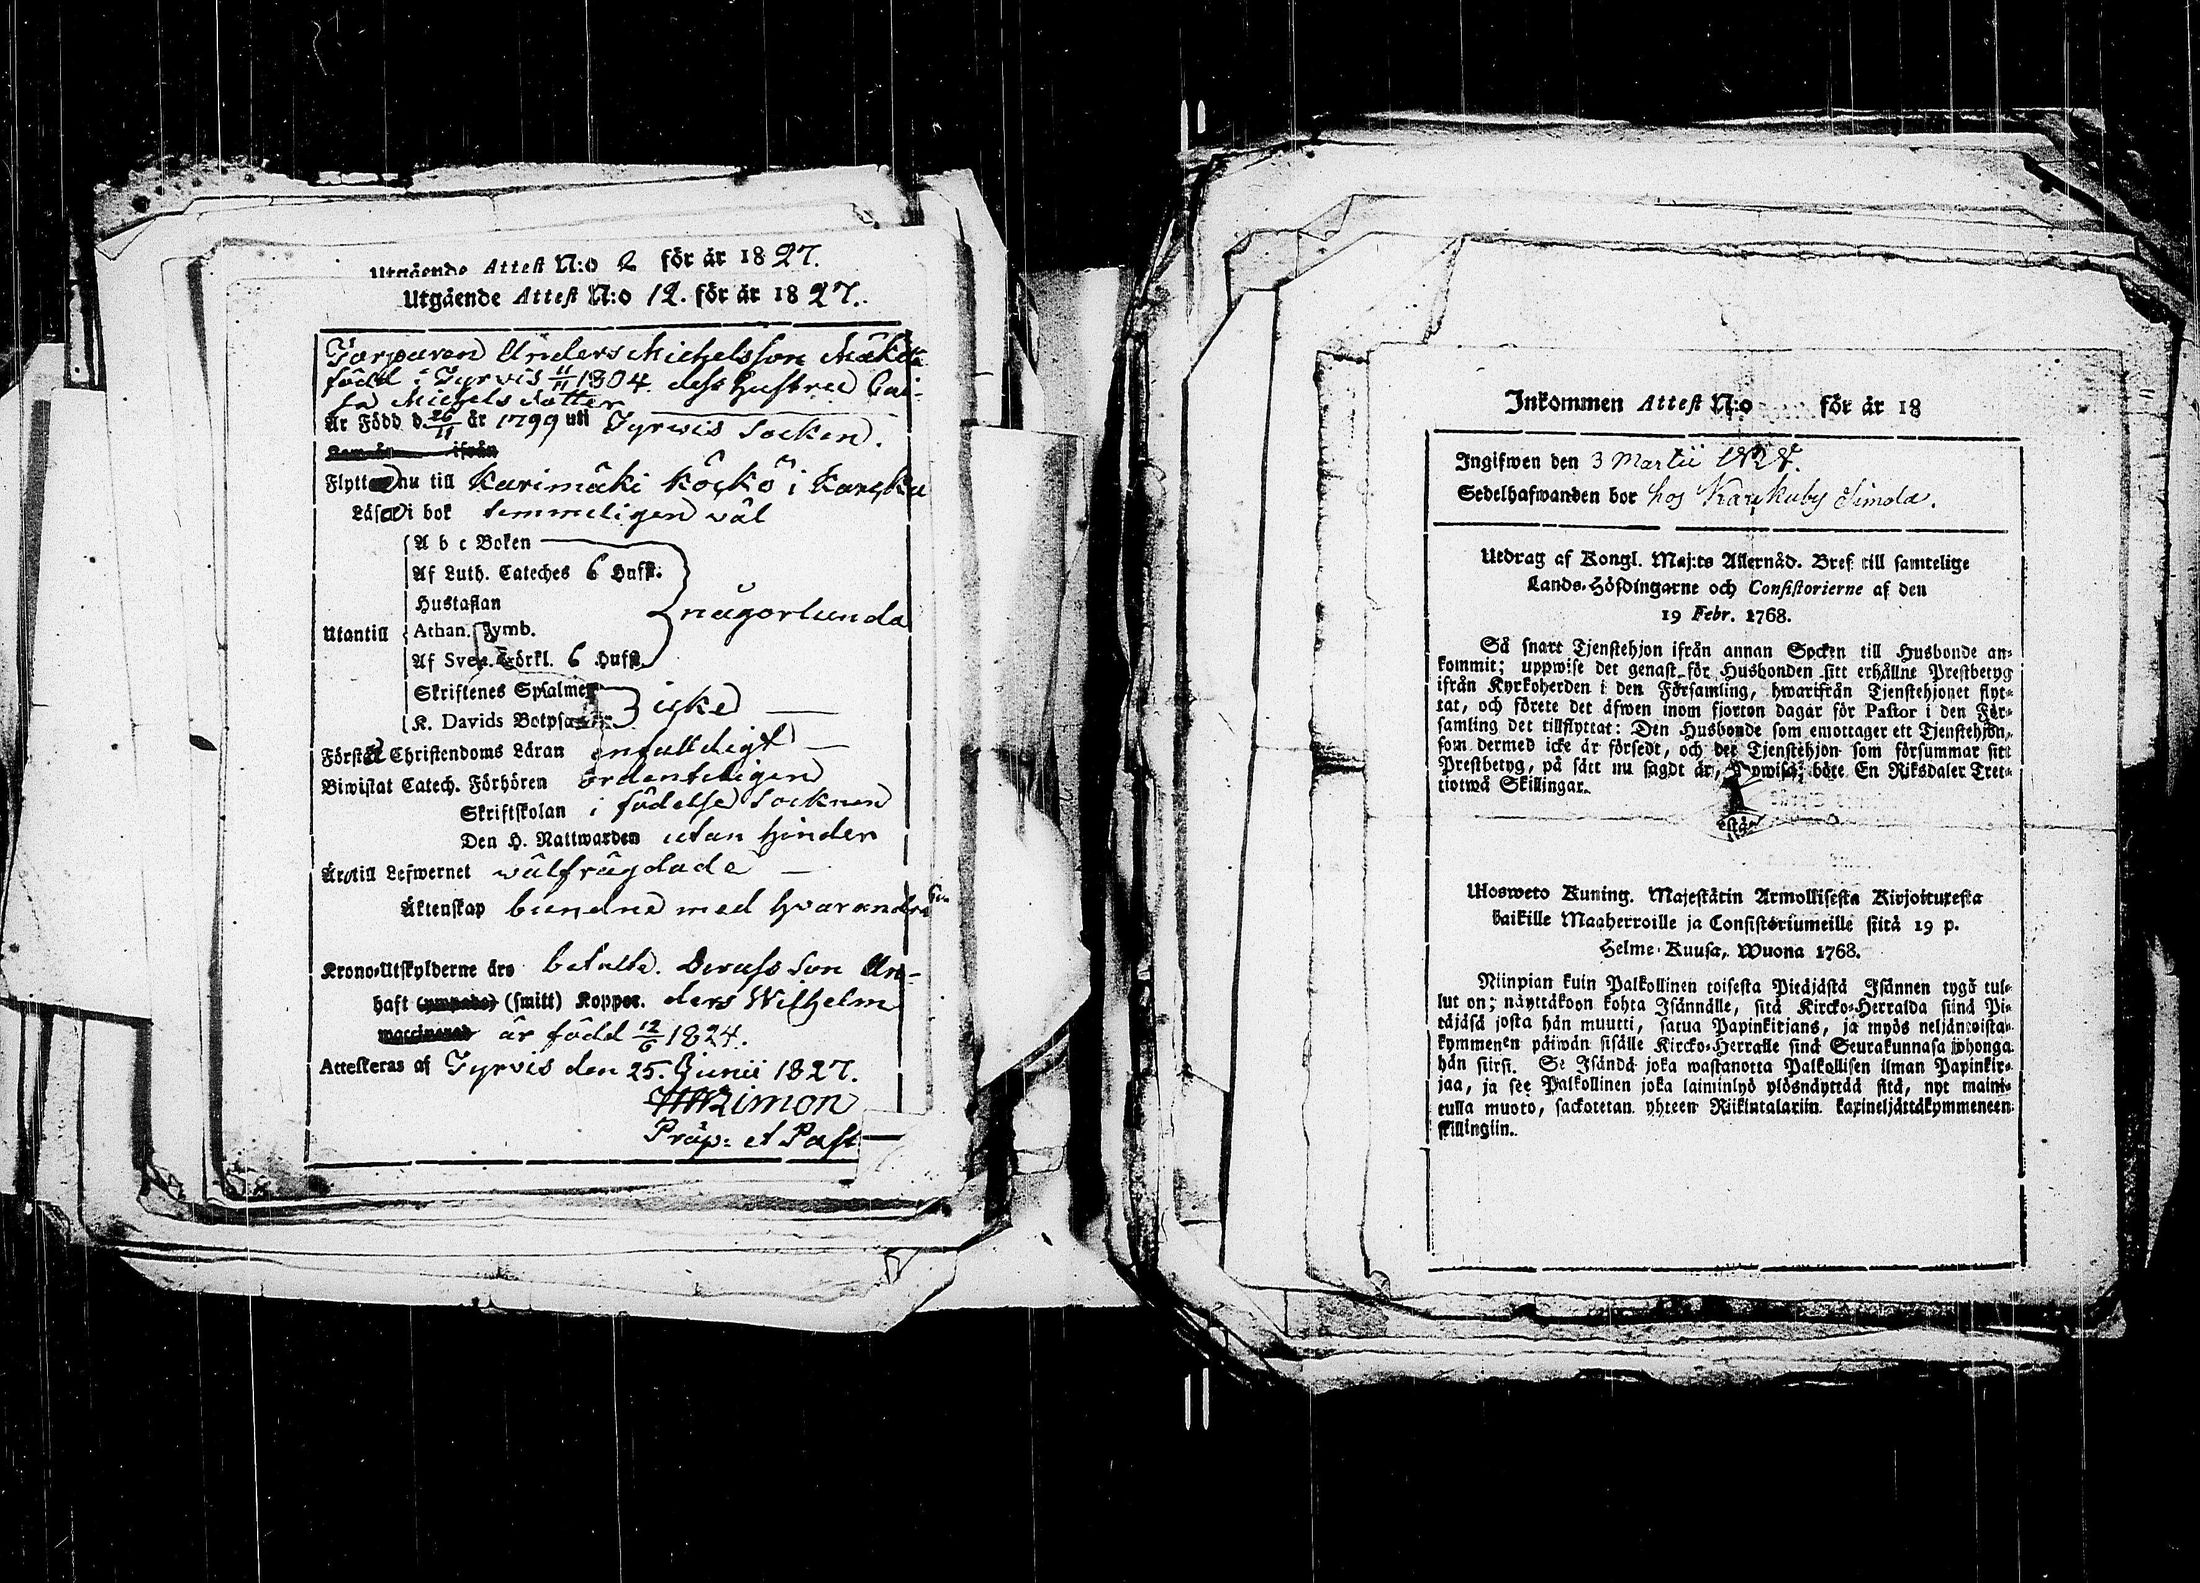 Utgående Attest N:o 2 för år 1827.
Utgående Attest N:o 12. för år 1827.
Torparen Anders Michelsson Mäkelä
född i Tyrvis 11/11 1804. dess Hustru Cai-
sa Michelsdotter
Är Född d. 26/11 år 1799 uti Tyrwis Socken.
ifrån
Flytta nu till Karimäki Köckö i Karcku
Läsa i bok temmeligen wäl
A b c Boken
Af Luth. Cateches 6 Hufst.
Hustaflan
någorlunda
Utantill
Athan. Symb.
Af Sveb. Förkl. 6 Hufst.
Skriftenes Spsalmer
icke
K. Davids Botpsalmer
Förstå Christendoms Läran enfaldigt
Biwistat Catech. Förhören ordenteligen
Skriftskolan i födelse Socknen
Den H. Nattwarden utan hinder
Äro till Lefwernet wälfrägdade
Äktenskap bundne med hvarandra
Krono-Utskylderne äro betalte. Derass Son An-
haft (ympade) (smitt) Koppor. ders Wilhelm
waccinerad är född 12/6 1824.
Attesteras af Tyrvis den 25. Junii 1827.
Limon
Präp: et Past
Inkommen Attest N:o för år 18
Ingifwen den 3 Martii 1827.
Sedelhafwanden bor hos Karkuby Simola.
Utdrag af Kongl. Maj:ts Allernåd. Bref till samtelige
Lands-Höfdingarne och Consistorierne af den
19 Febr. 1768.
Så snart Tjenstehjon ifrån annan Socken till Husbonde an-
kommit; uppwise det genast för Husbonden sitt erhållne Prestbetyg
ifrån Kyrkoherden i den Församling, hwarifrån Tjenstehjonet flyt-
tat, och förete det äfwen inom fjorton dagar för Pastor i den För-
samling det tillflyttat: Den Husbonde som emottager ett Tjenstehjon,
som dermed icke är försedt, och det Tjenstehjon som försummar sitt
Prestbetyg, på sätt nu sagdt är, upwisa; böte En Riksdaler Tret-
tiotwå Skillingar.
Ulosweto Kuning. Majestätin Armollisesta Kirjoituxesta
kaikille Maaherroille ja Consistoriumeille siitä 19 p.
Helme-Kuusa, Wuona 1768.
Niinpian kuin Palkollinen toisesta Pitäjästä Isännen tygö tul-
lut on; näyttäkoon kohta Isännälle, sitä Kircko-Herralda siinä Pi-
täjäsä josta hän muutti, saatua Papinkirjans, ja myös neljäntoista-
kymmenen päiwän sisälle Kircko-Herralle siinä Seurakunnasa johonga
hän siirsi. Se Isändä joka wastanotta Palkollisen ilman Papinkir-
jaa, ja see Palkollinen joka laiminlyö ylösnäyttää sitä, nyt maini-
tulla muoto, sackotetan yhteen Riikintalariin kaxineljättäkymmeneen
skillingiin.